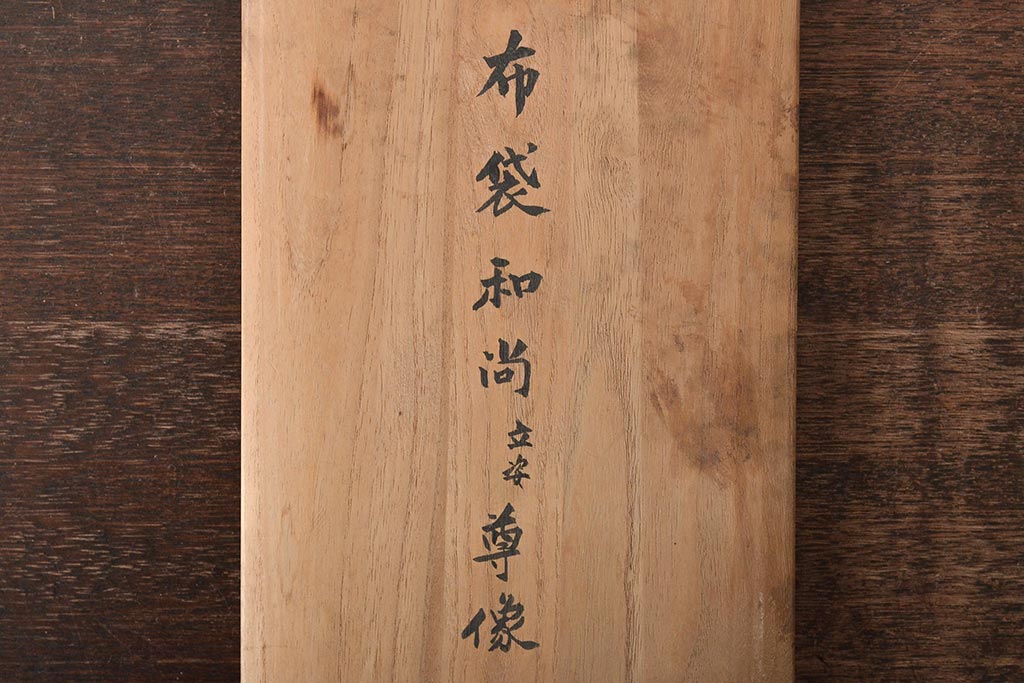 布袋和尚立姿尊像